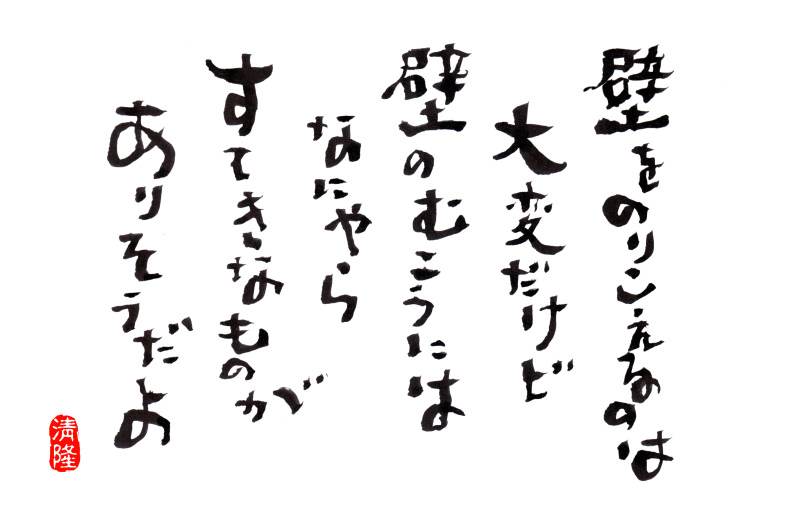 壁をのりこえるのは
大変だけど
壁のむこうには
なにやら
すてきなものが
ありそうだよ
清隆